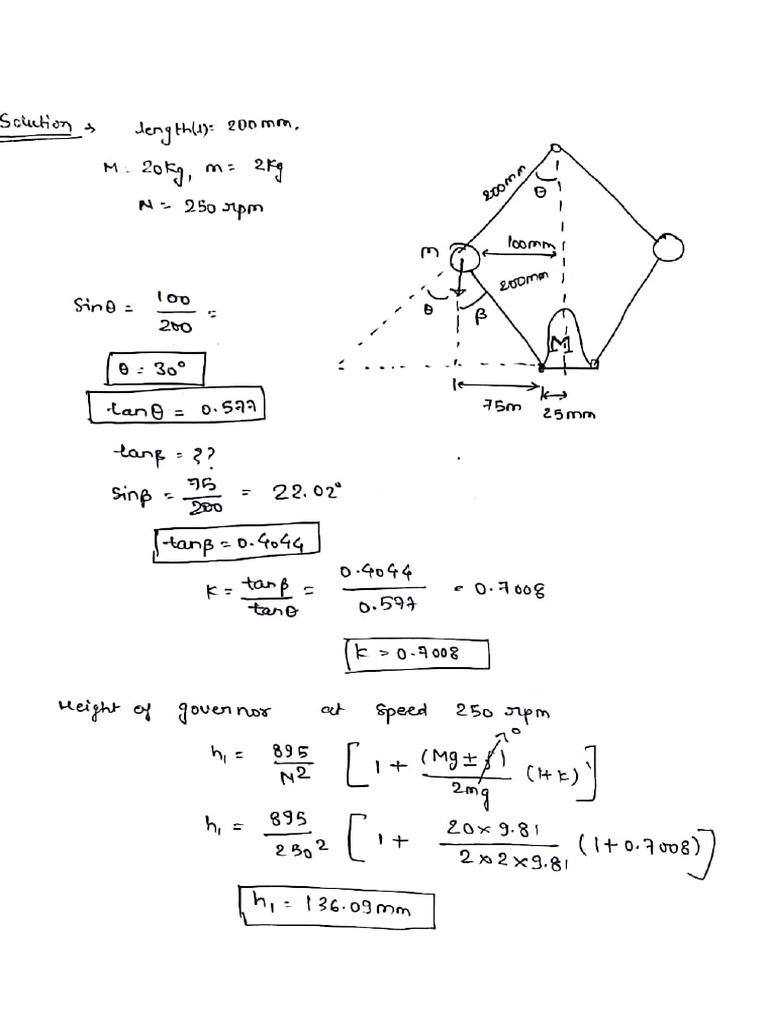 Solution → length(l)= 200mm,
M: 20kg, m= 2kg
N= 250 rpm
200mm
θ
m
100mm
200mm
θ
β
M
75m
25mm
Sinθ = 100/200 =
θ = 30°
tanθ = 0.577
tanβ = ??
sinβ = 75/200 = 22.02°
tanβ = 0.4044
K = tanβ/tanθ = 0.4044/0.577 = 0.7008
K = 0.7008
Height of governor at speed 250 rpm
h₁ = 895/N² [1 + (Mg ± f)/2mg (1+k)]
0
h₁ = 895/250² [1 + 20×9.81/2×2×9.81 (1+0.7008)]
h₁ = 136.09mm